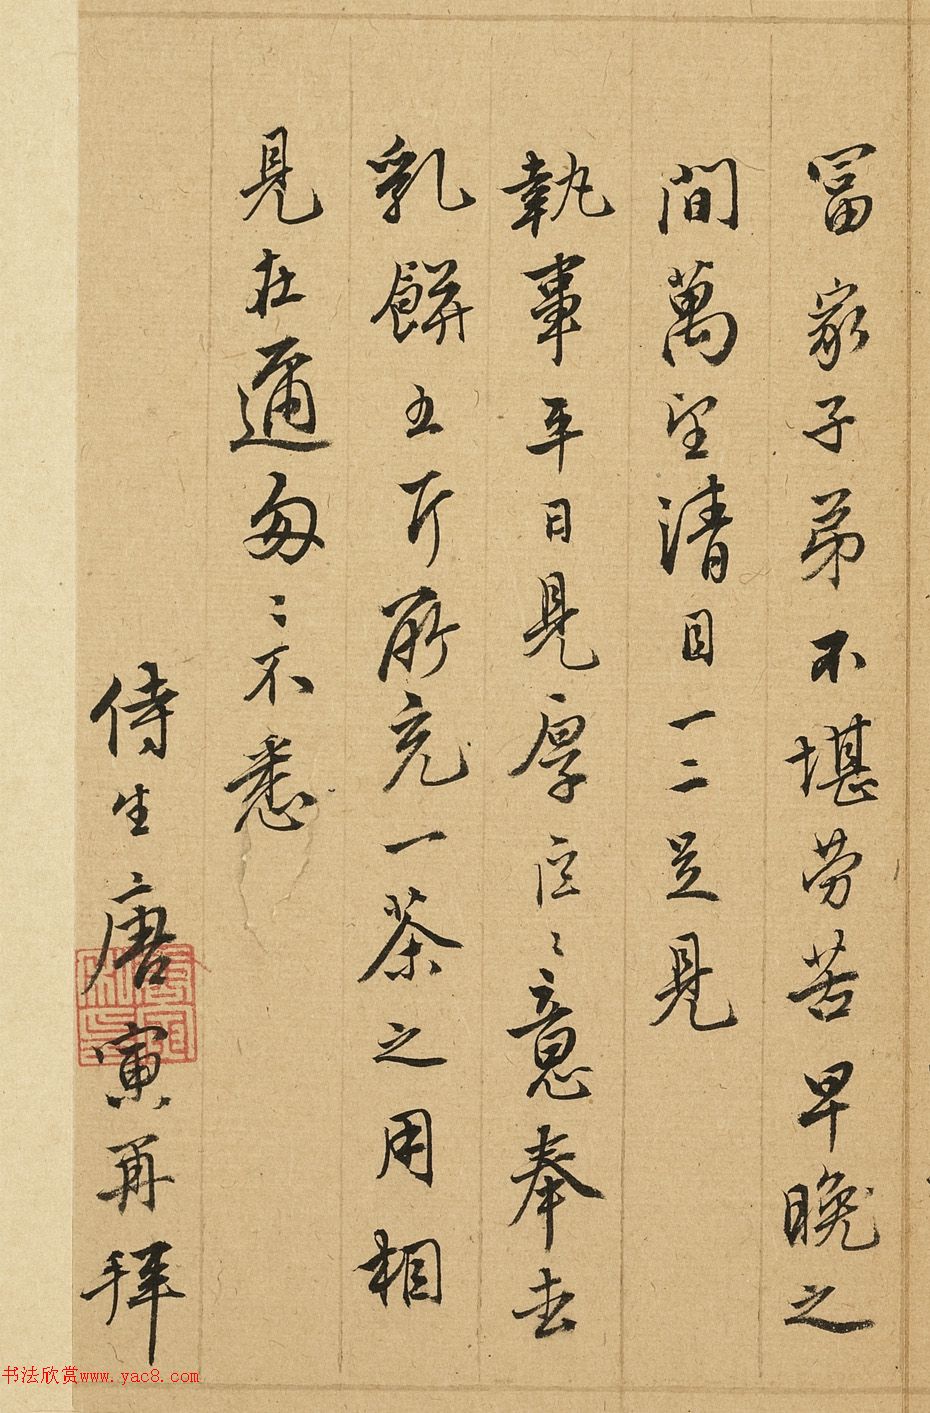 冨家子弟不堪劳苦早晚之
間萬望清目一二足見
執事平日見厚區〻意奉去
乳餅五斤所充一茶之用相
見在邇匆〻不悉
侍生唐寅再拜
书法欣赏www.yac8.com